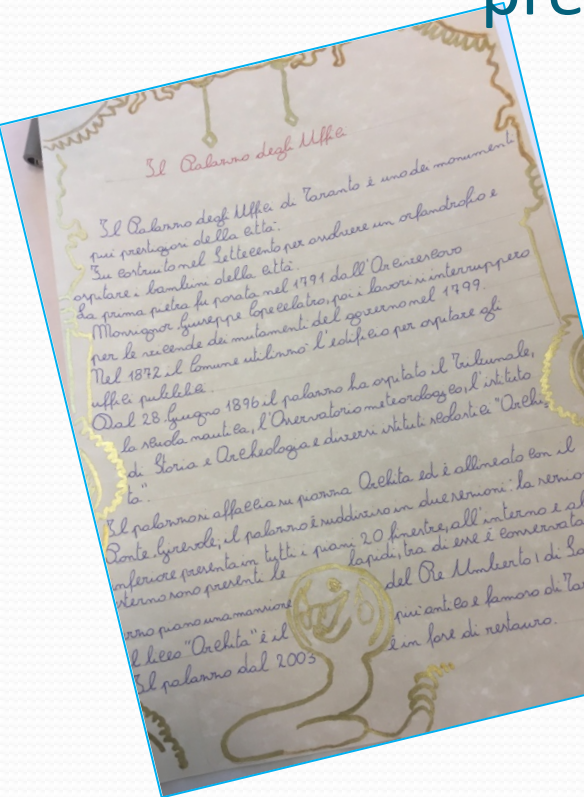 pre
Il Palazzo degli Uffici
Il Palazzo degli Uffici di Taranto è uno dei monumenti
più prestigiosi della città.
Fu costruito nel Settecento per assolvere un orfanotrofio e
ospitare i bambini della città.
La prima pietra fu posata nel 1791 dall'Arcivescovo
Monsignor Giuseppe Capecelatro, poi i lavori si interruppero
per le vicende dei mutamenti del governo nel 1799.
Nel 1872 il Comune utilizzò l'edificio per ospitare gli
uffici pubblici.
Dal 28 Giugno 1896 il palazzo ha ospitato il Tribunale,
la scuola nautica, l'Osservatorio meteorologico, l'istituto
di Storia e Archeologia e diversi istituti scolastici "Archi
ta".
Il palazzo si affaccia su piazza Archita ed è allineato con il
Ponte Girevole, il palazzo è suddiviso in due sezioni: la sezio
inferiore presenta in tutti i piani 20 finestre, all'interno e al
sterno sono presenti le lapidi, tra di esse è conservata
piano una mansione del Re Umberto I di Sa
l liceo "Archita" è il più antico e famoso di Tar
Il palazzo dal 2003 è in fase di restauro.